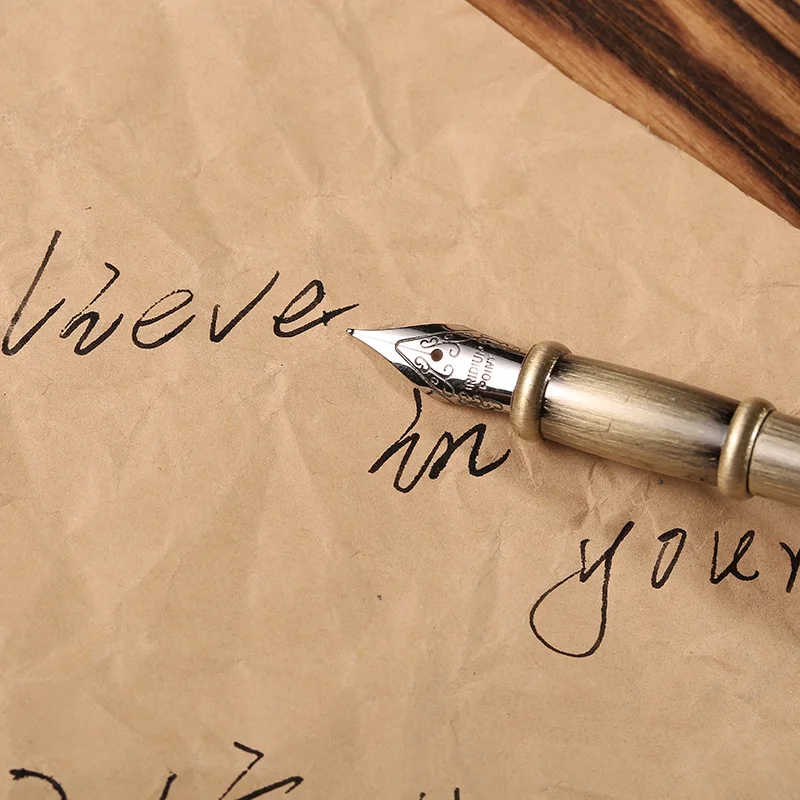 lieve
in
your
IRIDIUM
POINT